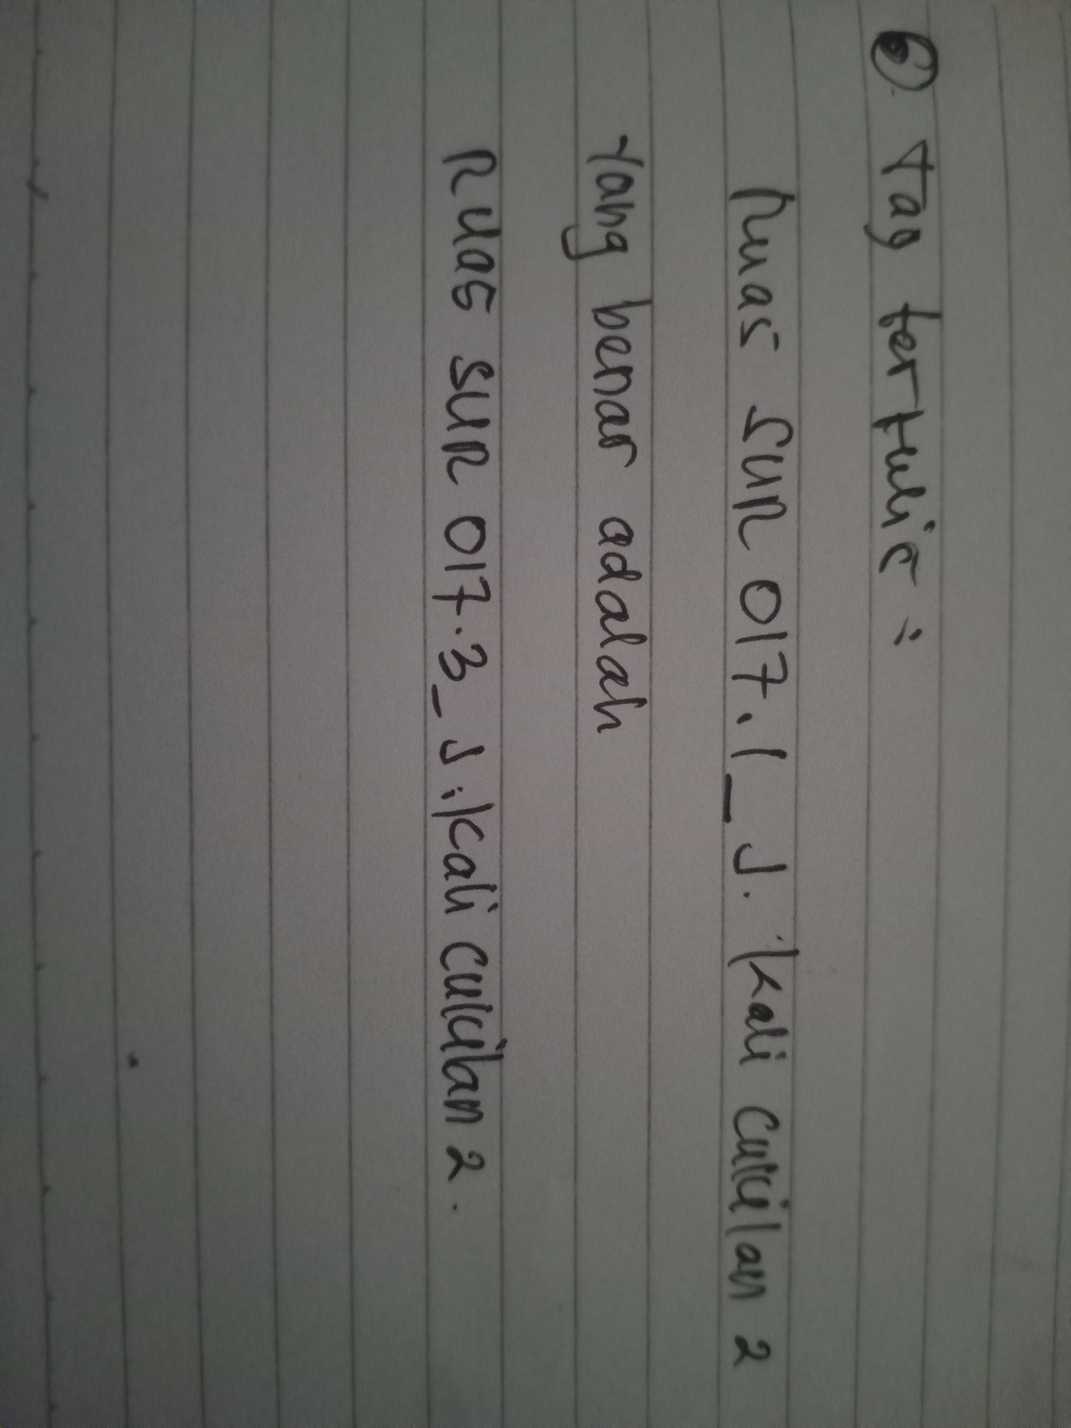 6). Tag tertulis :
Ruas SUR 017.1_J. Kali cucilan 2
Yang benar adalah
Ruas SUR 017.3_J.Kali cucilan 2.